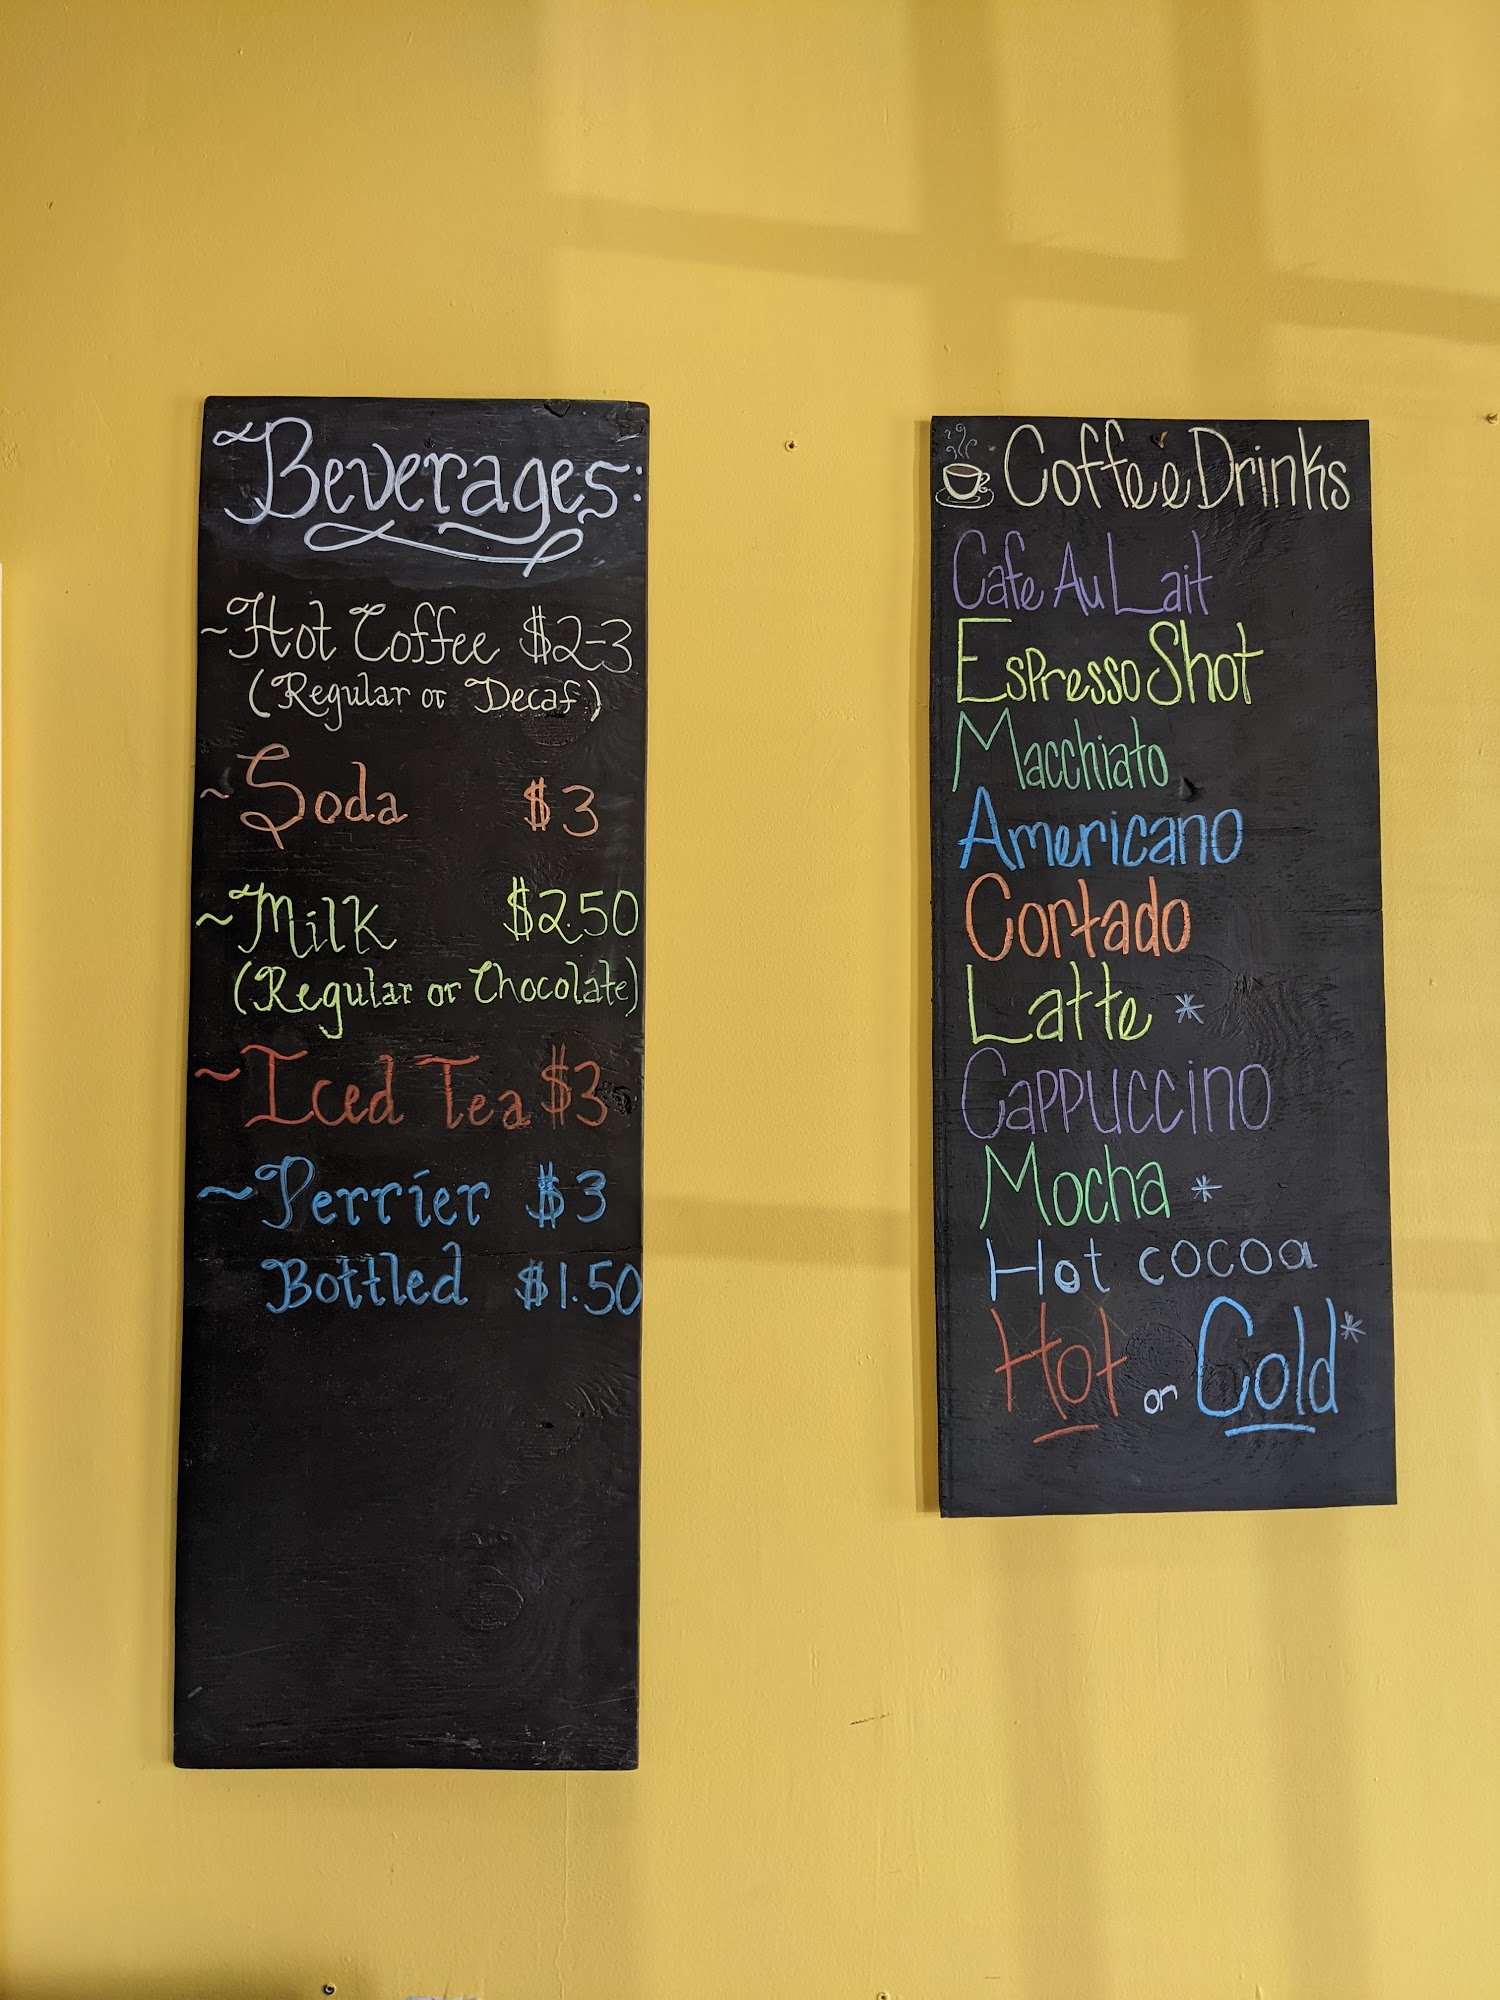 Beverages:
~Hot Coffee $2-3
(Regular or Decaf)
~Soda $3
~Milk $2.50
(Regular or Chocolate)
~Iced Tea $3
~Perrier $3
Bottled $1.50
Coffee Drinks
Cafe Au Lait
Espresso Shot
Macchiato
Americano
Cortado
Latte *
Cappuccino
Mocha *
Hot cocoa
Hot or Cold*